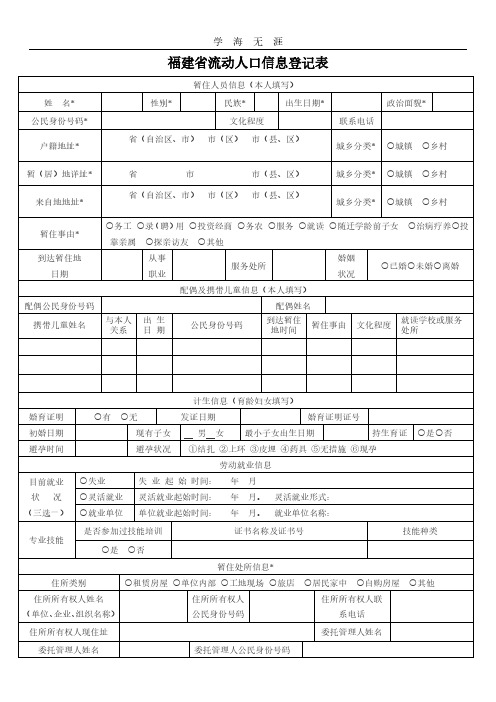 学 海 无 涯
福建省流动人口信息登记表
暂住人员信息（本人填写）
姓 名* 性别* 民族* 出生日期* 政治面貌*
公民身份号码* 文化程度 联系电话
户籍地址* 省（自治区、市） 市（区） 市（县、区） 城乡分类* ○城镇 ○乡村
暂（居）地详址* 省 市 市（县、区） 城乡分类* ○城镇 ○乡村
来自地地址* 省（自治区、市） 市（区） 市（县、区） 城乡分类* ○城镇 ○乡村
暂住事由* ○务工 ○录（聘）用 ○投资经商 ○务农 ○服务 ○就读 ○随迁学龄前子女 ○治病疗养○投
靠亲属 ○探亲访友 ○其他
到达暂住地 从事 服务处所 婚姻 ○已婚○未婚○离婚
日期 职业 状况
配偶及携带儿童信息（本人填写）
配偶公民身份号码 配偶姓名
携带儿童姓名 与本人 出 生 公民身份号码 到达暂住 暂住事由 文化程度 就读学校或服务
关系 日 期 地时间 处所
计生信息（育龄妇女填写）
婚育证明 ○有 ○无 发证日期 婚育证明证号
初婚日期 现有子女 男 女 最小子女出生日期 持生育证 ○是○否
避孕时间 避孕状况 ①结扎 ②上环 ③皮埋 ④药具 ⑤无措施 ⑥现孕
劳动就业信息
目前就业 ○失业 失 业 起 始 时间： 年 月
状 况 ○灵活就业 灵活就业起始时间： 年 月。 灵活就业形式：
（三选一） ○就业单位 单位就业起始时间： 年 月。 就业单位名称：
专业技能 是否参加过技能培训 证书名称及证书号 技能种类
○是 ○否
暂住处所信息*
住所类别 ○租赁房屋 ○单位内部 ○工地现场 ○旅店 ○居民家中 ○自购房屋 ○其他
住所所有权人姓名 住所所有权人 住所所有权人联
（单位、企业、组织名称） 公民身份号码 系电话
住所所有权人现住址 委托管理人姓名
委托管理人姓名 委托管理人公民身份号码